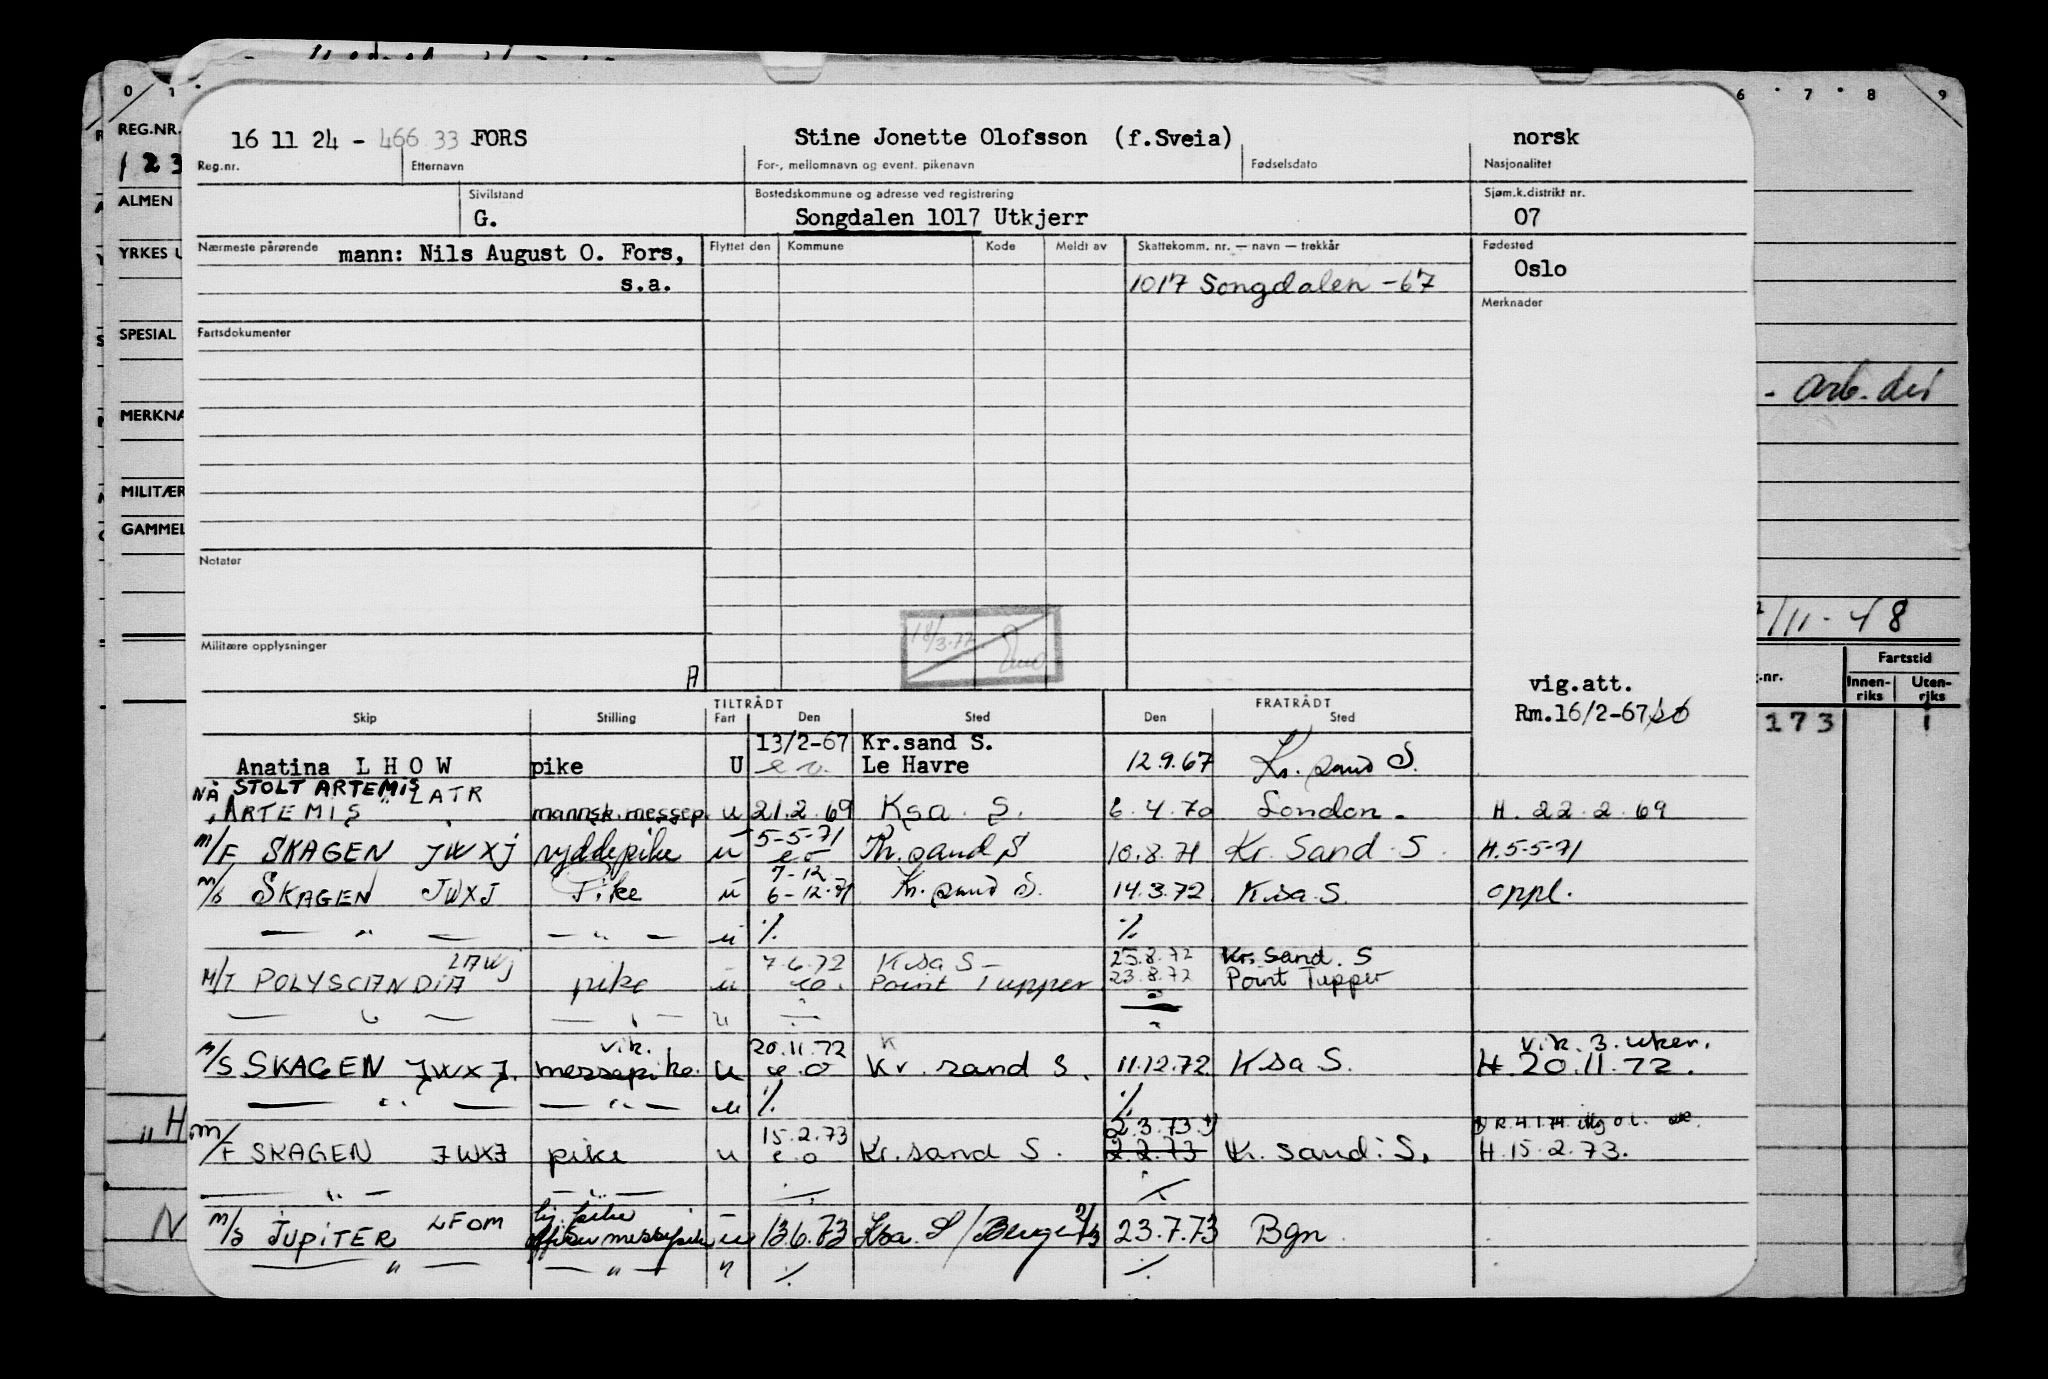 0 1
6 7 8 9
REG.NR.
123
ALMEN
YRKES U
SPESIAL
MERKNA
MILITÆR
GAMMEL
16 11 24 - 466 33 FORS Stine Jonette Olofsson (f.Sveia) norsk
Reg.nr. Etternavn For-, mellomnavn og event. pikenavn Fødselsdato Nasjonalitet
Sivilstand Bostedskommune og adresse ved registrering Sjøm.k.distrikt nr.
G. Songdalen 1017 Utkjerr 07
Nærmeste pårørende mann: Nils August O. Fors, Flyttet den Kommune Kode Meldt av Skattekomm. nr. — navn — trekkår Fødested
Oslo
s.a. 1017 Songdalen -67
Merknader
Fartsdokumenter
- arb. des
Notater
18/3.77
/11-48
Militære opplysninger
A
Fartstid
.nr. Innen-riks Uten-riks
173 1
vig.att.
Rm.16/2-67
TILTRÅDT FRATRÅDT
Skip Stilling Fart Den Sted Den Sted
13/2-67 Kr.sand S.
Anatina LHOW pike U e.o. Le Havre 12.9.67 Kr. sand S.
NÅ STOLT ARTEMIS
ARTEMIS LATR mannsk.messep. u 21.2.69 Ksa. S. 6.4.70 London. H. 22.2.69
5-5-71
M/F SKAGEN JWXJ ryddepike u eo Kr. sand S 10.8.71 Kr. Sand. S. H.5-5-71
7-12
M/S SKAGEN JWXJ Pike u 6-12-71 Kr. sand S. 14.3.72 Ksa S. oppl.
— " — — " — u ./. ./.
LAWJ 7.6.72 Ksa S- 25.8.72 Kr. Sand. S
M/T POLYSCANDIA pike u eo. Point Tupper 23.8.72 Point Tupper
— " — — " — u
vik. 20.11.72 K vik. 3. uker.
M/S SKAGEN JWXJ. messepike. u e.o Kr. sand S. 11.12.72 Ksa S. H. 20.11.72.
— " — — " — u ./. ./.
15.2.73 2.3.73 1) 1) R.4.1.74
M/F SKAGEN JWXJ pike u e.o Kr.sand S. 2.2.73 Kr. sand. S. H.15.2.73.
— " — — " — ./. ./.
M/S JUPITER LFOM messepike u 13.6.73 Ksa. S/Bergen 23.7.73 Bgn.
— " — — " — " ./. ./.
"H
N